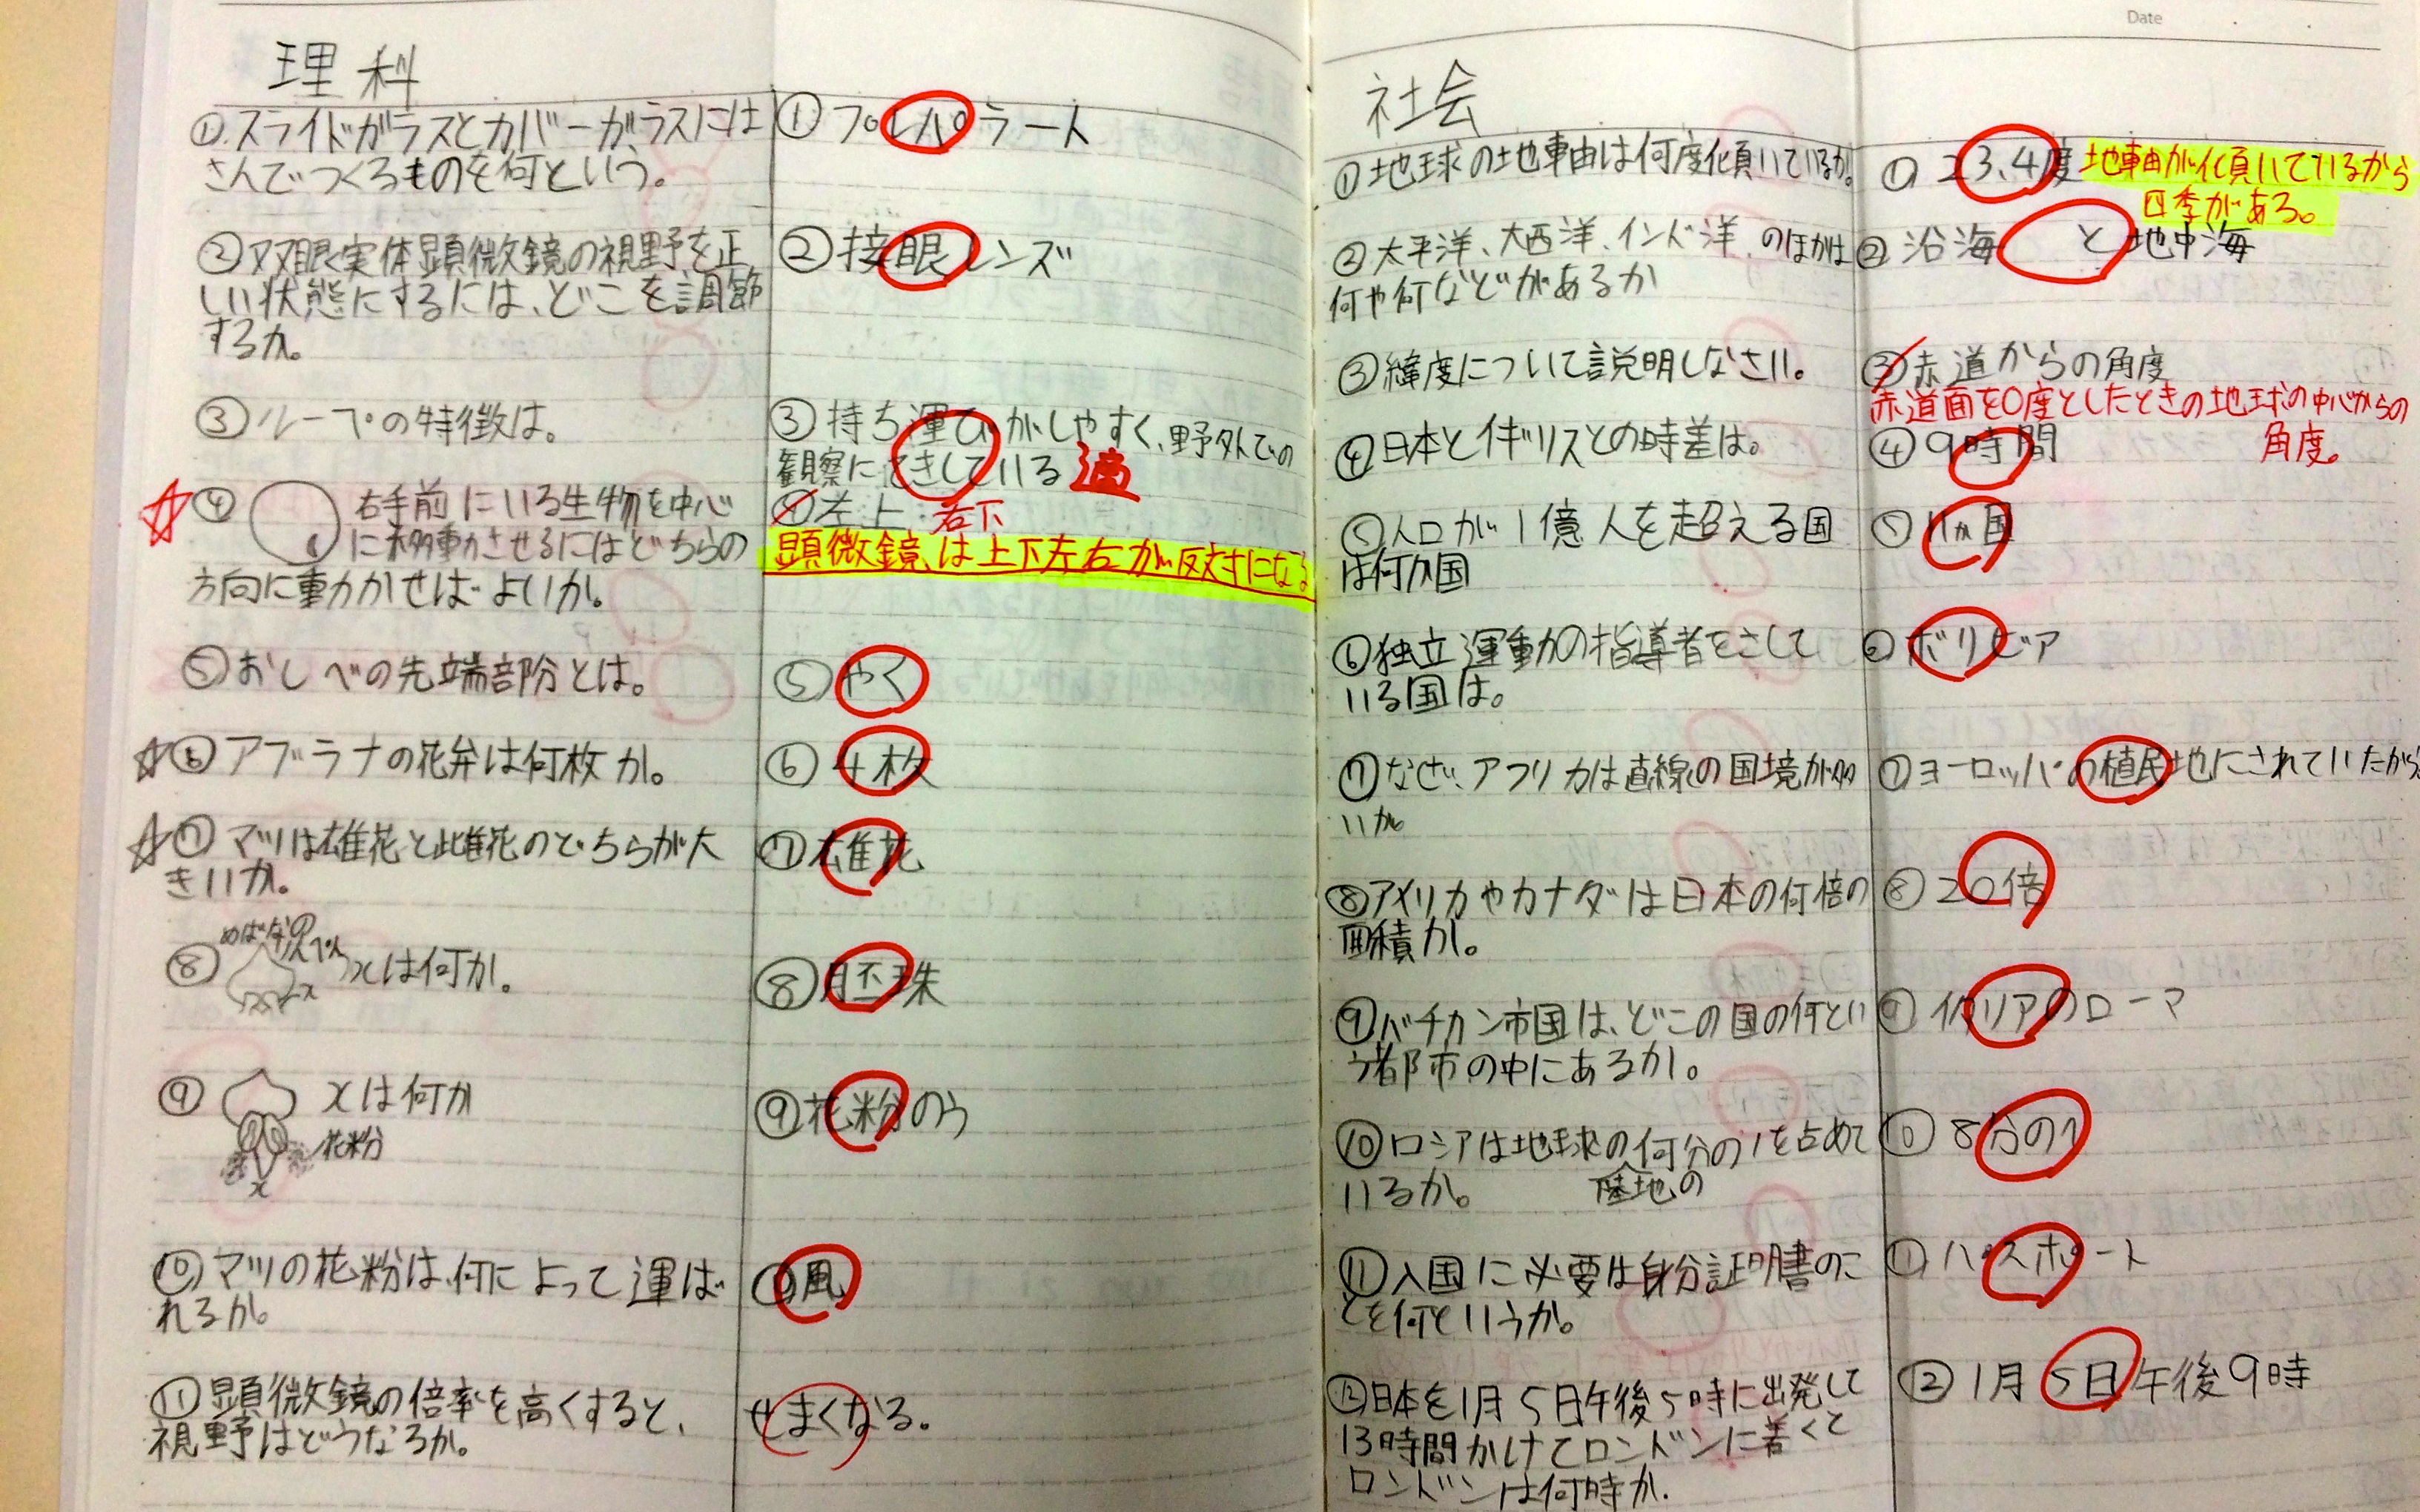 理科
①スライドガラスとカバーガラスには
さんでつくるものを何という。
①プレパラート
②双眼実体顕微鏡の視野を正
しい状態にするには、どこを調節
するか。
②接眼レンズ
③ルーペの特徴は。
③持ち運びがしやすく、野外での
観察にてきしている 適
④ 右手前にいる生物を中心
に移動させるにはどちらの
方向に動かせばよいか。
④左上 右下
顕微鏡は上下左右が反対になる
⑤おしべの先端部分とは。
⑤やく
⑥アブラナの花弁は何枚か。
⑥4枚
⑦マツは雄花と雌花のどちらが大
きいか。
⑦雄花
⑧ めばなの
りんぺん
xは何か。
x
⑧胚珠
⑨ xは何か
花粉
x
⑨花粉のう
⑩マツの花粉は、何によって運ば
れるか。
⑩風
⑪顕微鏡の倍率を高くすると、
視野はどうなるか。
せまくなる。
Date
社会
①地球の地軸は何度傾いているか。
①23.4度 地軸が傾いているから
四季がある。
②太平洋、大西洋、インド洋、のほかは
何や何などがあるか
②沿海 と地中海
③緯度について説明しなさい。
③赤道からの角度
赤道面を0度としたときの地球の中心からの
角度。
④日本とイギリスとの時差は。
④9時間
⑤人口が1億人を超える国
は何カ国
⑤11ヵ国
⑥独立運動の指導者をさして
いる国は。
⑥ボリビア
⑦なぜ、アフリカは直線の国境が多
いか。
⑦ヨーロッパの植民地にされていたから。
⑧アメリカやカナダは日本の何倍の
面積か。
⑧20倍
⑨バチカン市国は、どこの国の何とい
う都市の中にあるか。
⑨イタリアのローマ
⑩ロシアは地球の何分の1を占めて
いるか。 陸地の
⑩8分の1
⑪入国に必要な身分証明書のこ
とを何というか。
⑪パスポート
⑫日本を1月5日午後5時に出発して
13時間かけてロンドンに着くと
ロンドンは何時か.
⑫1月5日午後9時